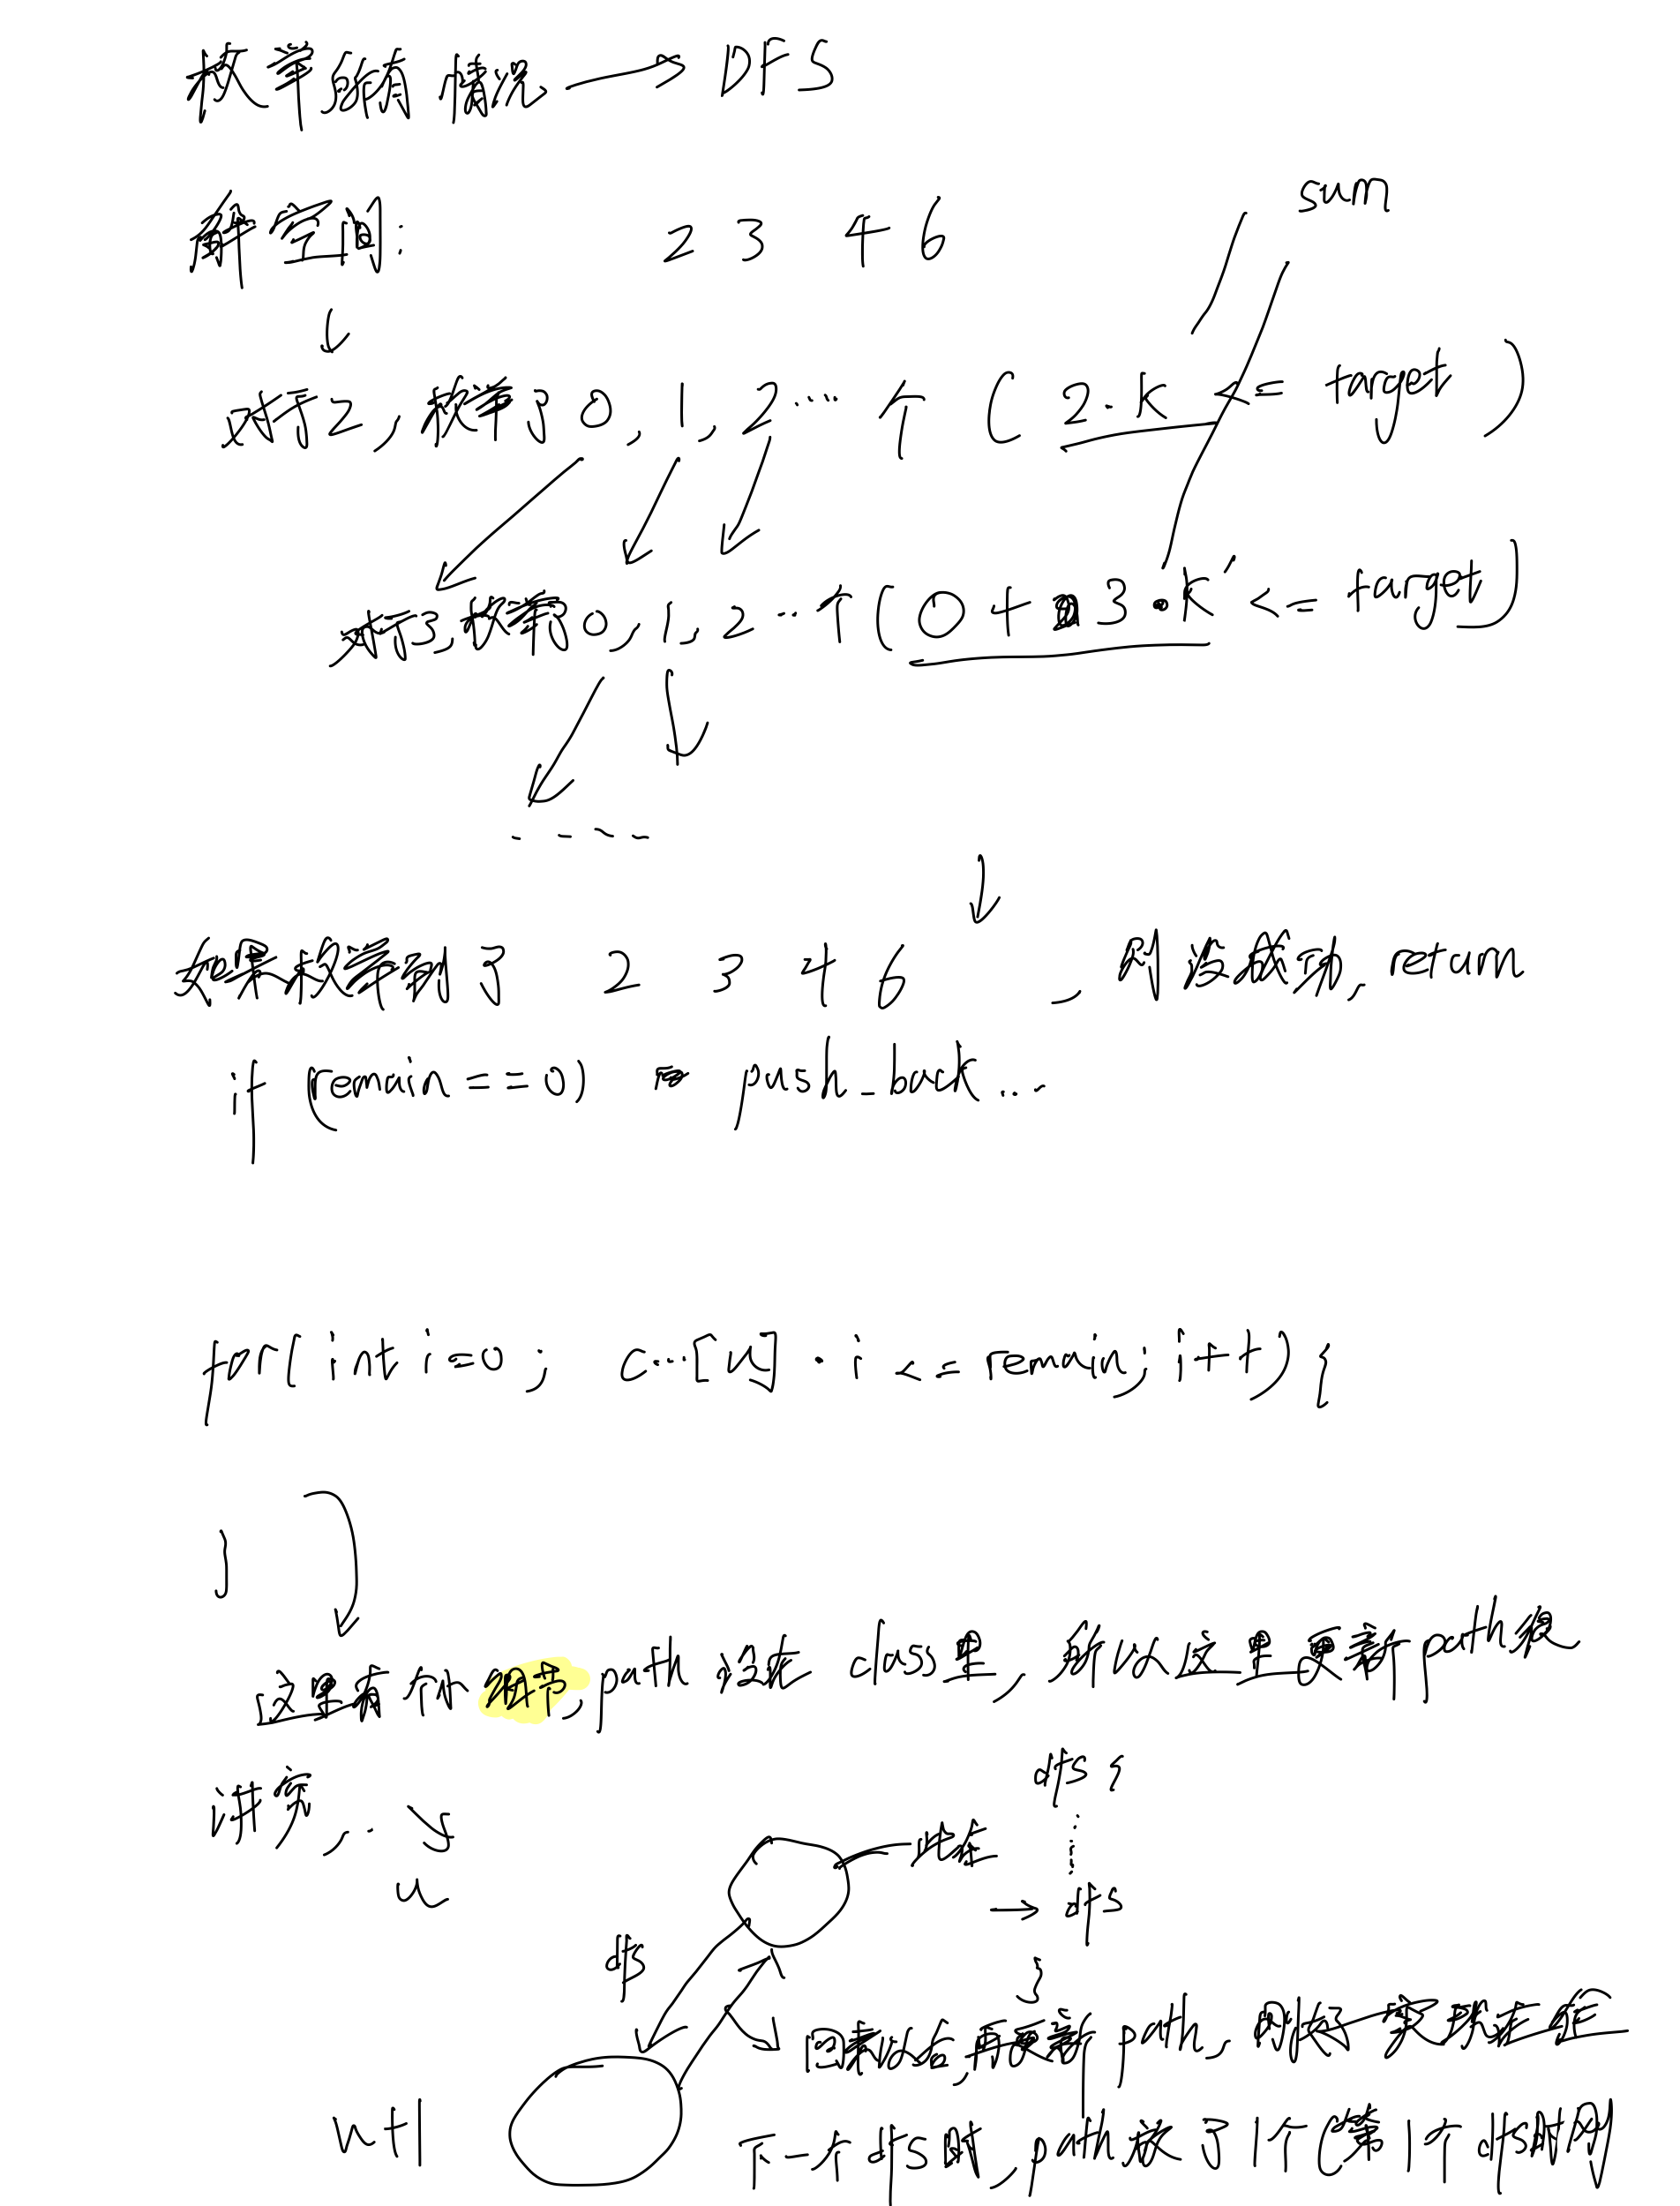 枚举所有情况 → DFS
sum
解空间: 2 3 4 6
对于2,枚举了0,1,2…个 ( 2·K <= target )
对于3,枚举了0,1,2…个 (0 + 3·K' <= target)
.....
如果枚举到了 2 3 4 6 ,则说成功, return
if (remain==0) push_back...
for( int i=0; c...[u] · i <= remain; i++) {
}
这里有个 细节,path 设在 class里, 所以这里更新path很
讲究,..
dfs {
此在
u
→ dfs
dfs
}
回来以后,再更新path, 刚好实现在
u+1
下一个dfs时,path放了1个(第1个dfs时